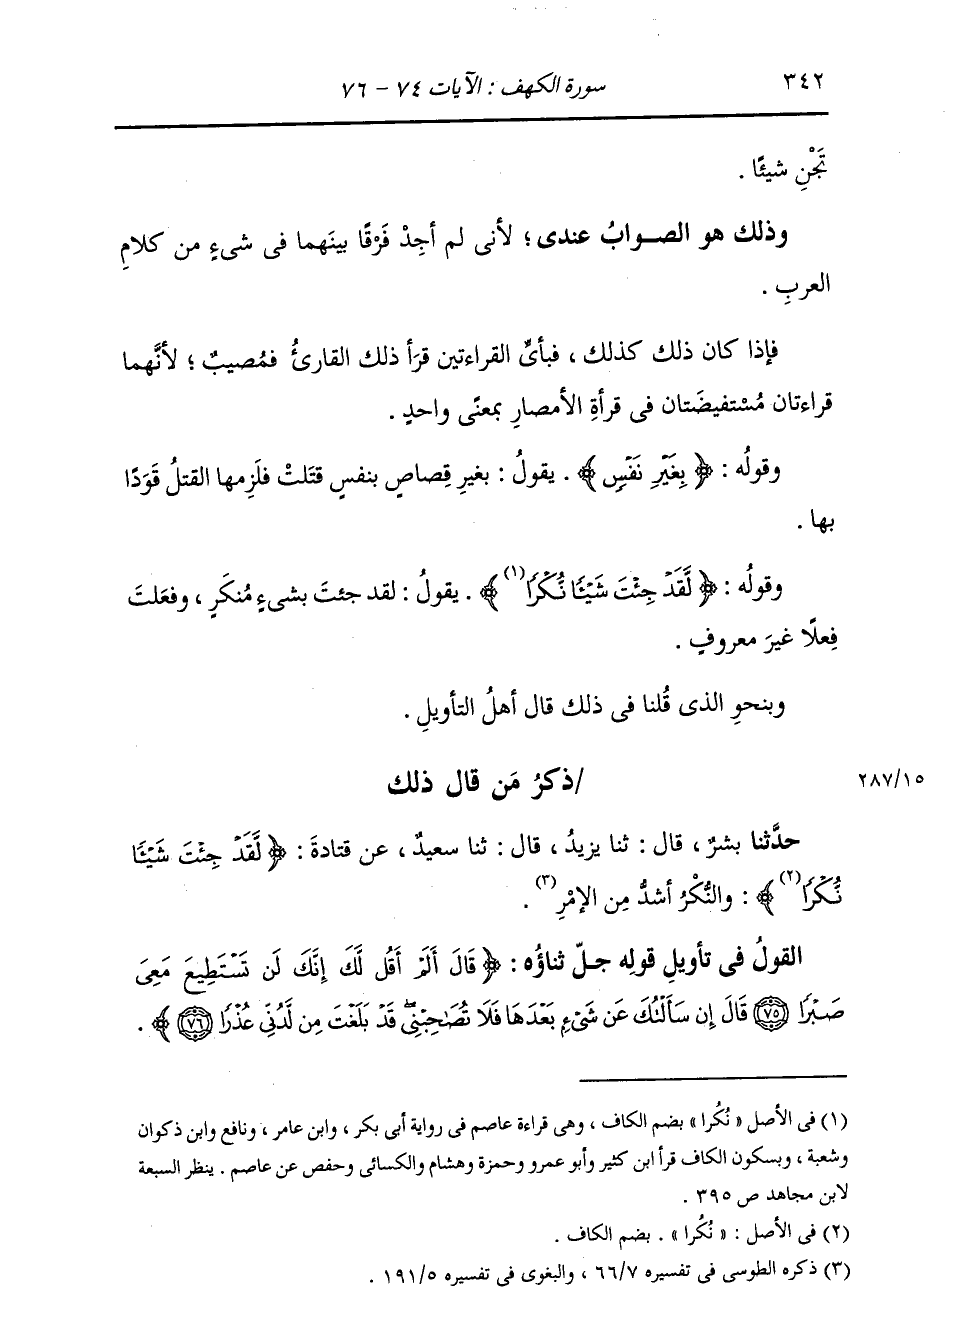 ٣٤٢ سورة الكهف : الآيات ٧٤ - ٧٦
تَجْنِ شيئًا .
وذلك هو الصــوابُ عندى ؛ لأنى لم أجِدْ فَرْقًا بينَهما فى شىءٍ من كلامِ
العربِ .
فإذا كان ذلك كذلك ، فبأىِّ القراءتين قرَأ ذلك القارئُ فمُصيبٌ ؛ لأنَّهما
قراءتان مُسْتفيضَتان فى قرأةِ الأمصارِ بمعنًى واحدٍ .
وقولُه : ﴿ بِغَيْرِ نَفْسٍ ﴾ . يقولُ : بغيرِ قِصاصٍ بنفسٍ قتَلتْ فلَزِمها القتلُ قَوَدًا
بها .
وقولُه : ﴿ لَّقَدْ جِئْتَ شَيْئًا نُّكْرًا(١) ﴾ . يقولُ : لقد جئتَ بشىءٍ مُنكَرٍ ، وفعَلتَ
فِعلًا غيرَ معروفٍ .
وبنحوِ الذى قُلنا فى ذلك قال أهلُ التأويلِ .
٢٨٧/١٥ /ذكرُ مَن قال ذلك
حدَّثنا بشرٌ ، قال : ثنا يزيدُ ، قال : ثنا سعيدٌ ، عن قتادةَ : ﴿ لَّقَدْ جِئْتَ شَيْئًا
نُّكْرًا(٢) ﴾ : والنُّكْرُ أشدُّ مِن الإمْرِ(٣) .
القولُ فى تأويلِ قولِه جلّ ثناؤُه : ﴿ قَالَ أَلَمْ أَقُل لَّكَ إِنَّكَ لَن تَسْتَطِيعَ مَعِىَ
صَبْرًا ٧٥ قَالَ إِن سَأَلْتُكَ عَن شَىْءٍ بَعْدَهَا فَلَا تُصَٰحِبْنِى ۖ قَدْ بَلَغْتَ مِن لَّدُنِّى عُذْرًا ٧٦ ﴾ .
(١) فى الأصل « نُكُرا » بضم الكاف ، وهى قراءة عاصم فى رواية أبى بكر ، وابن عامر ، ونافع وابن ذكوان
وشعبة ، وبسكون الكاف قرأ ابن كثير وأبو عمرو وحمزة وهشام والكسائى وحفص عن عاصم . ينظر السبعة
لابن مجاهد ص ٣٩٥ .
(٢) فى الأصل : « نُكُرا » . بضم الكاف .
(٣) ذكره الطوسى فى تفسيره ٦٦/٧ ، والبغوى فى تفسيره ١٩١/٥ .